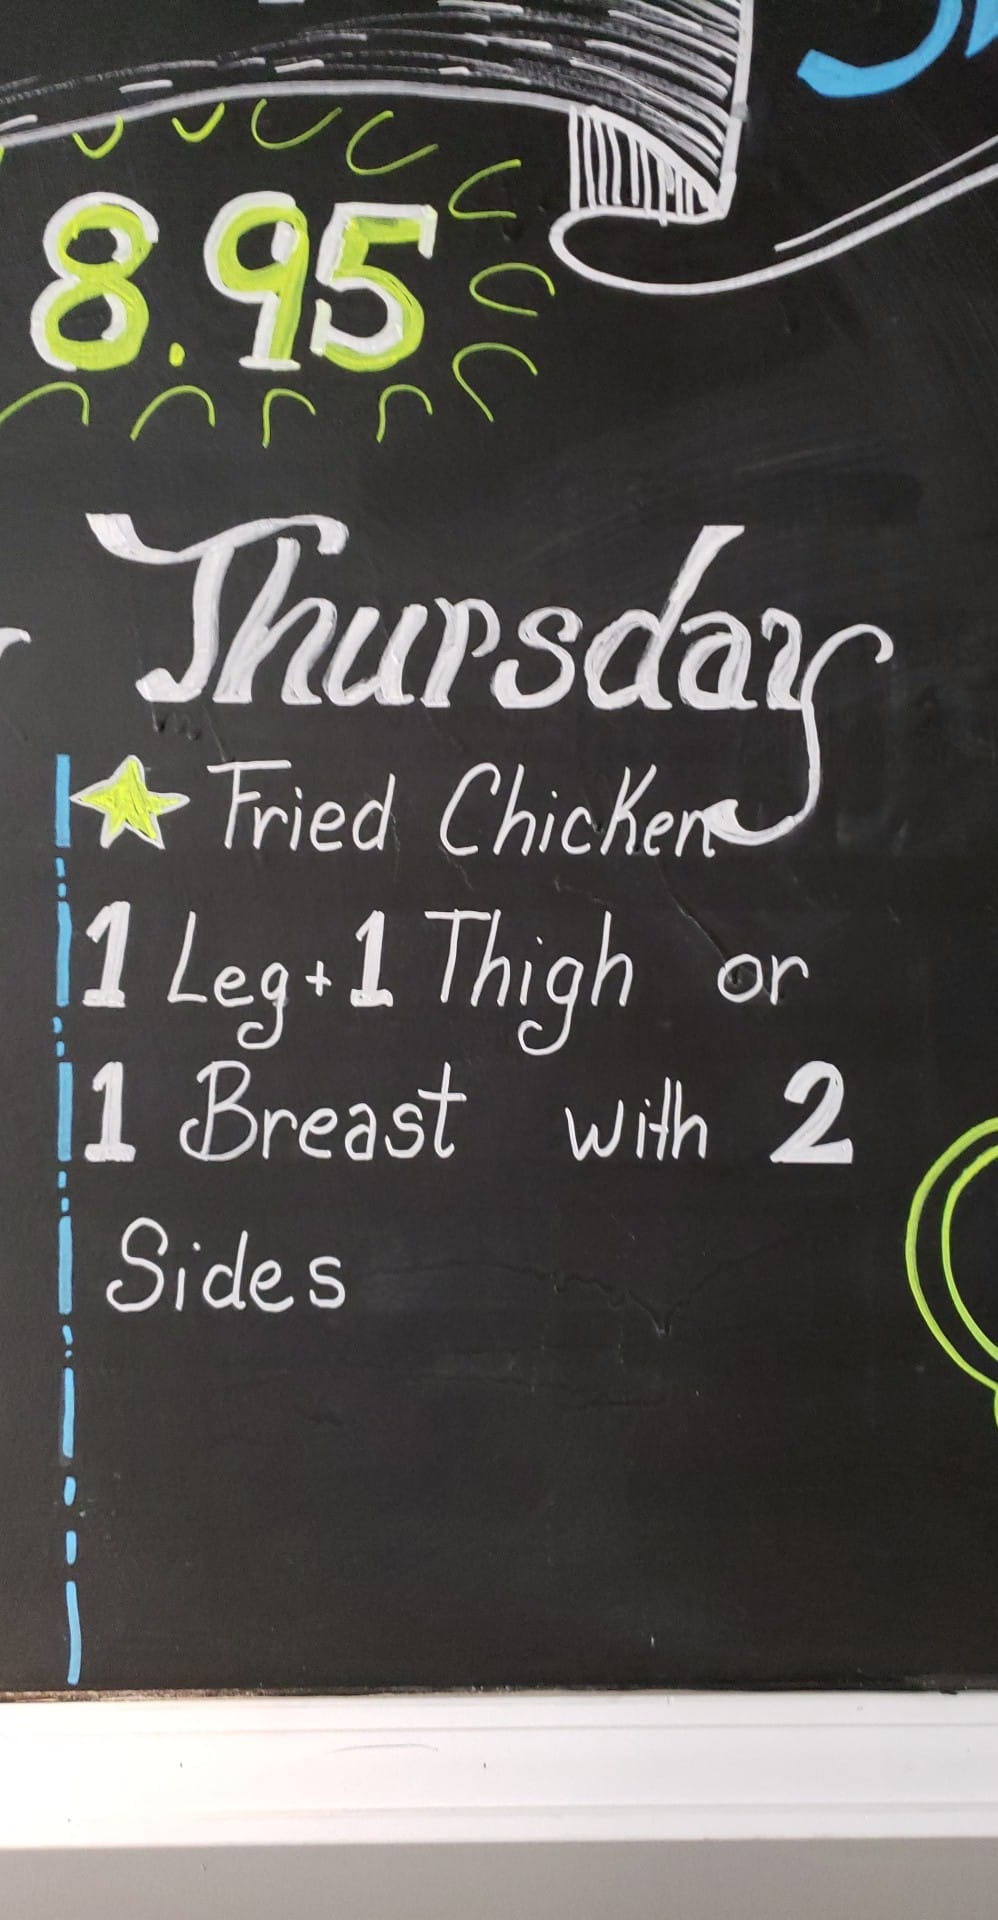 8.95
Thursday
Fried Chicken
1 Leg + 1 Thigh or
1 Breast with 2
Sides